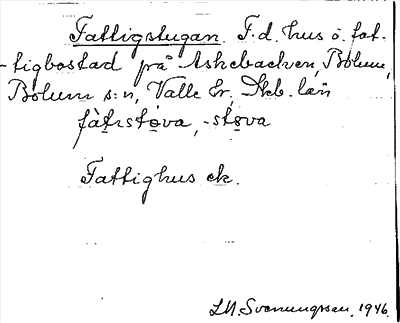 Fattigstugan. F.d. hus o. fat-
tigbostad på Askebacken, Bolum,
Bolum s:n, Valle hr, Skb. län
fàt̠rstøva, -støva
Fattighus ek.
L.N. Svenungsson, 1946.